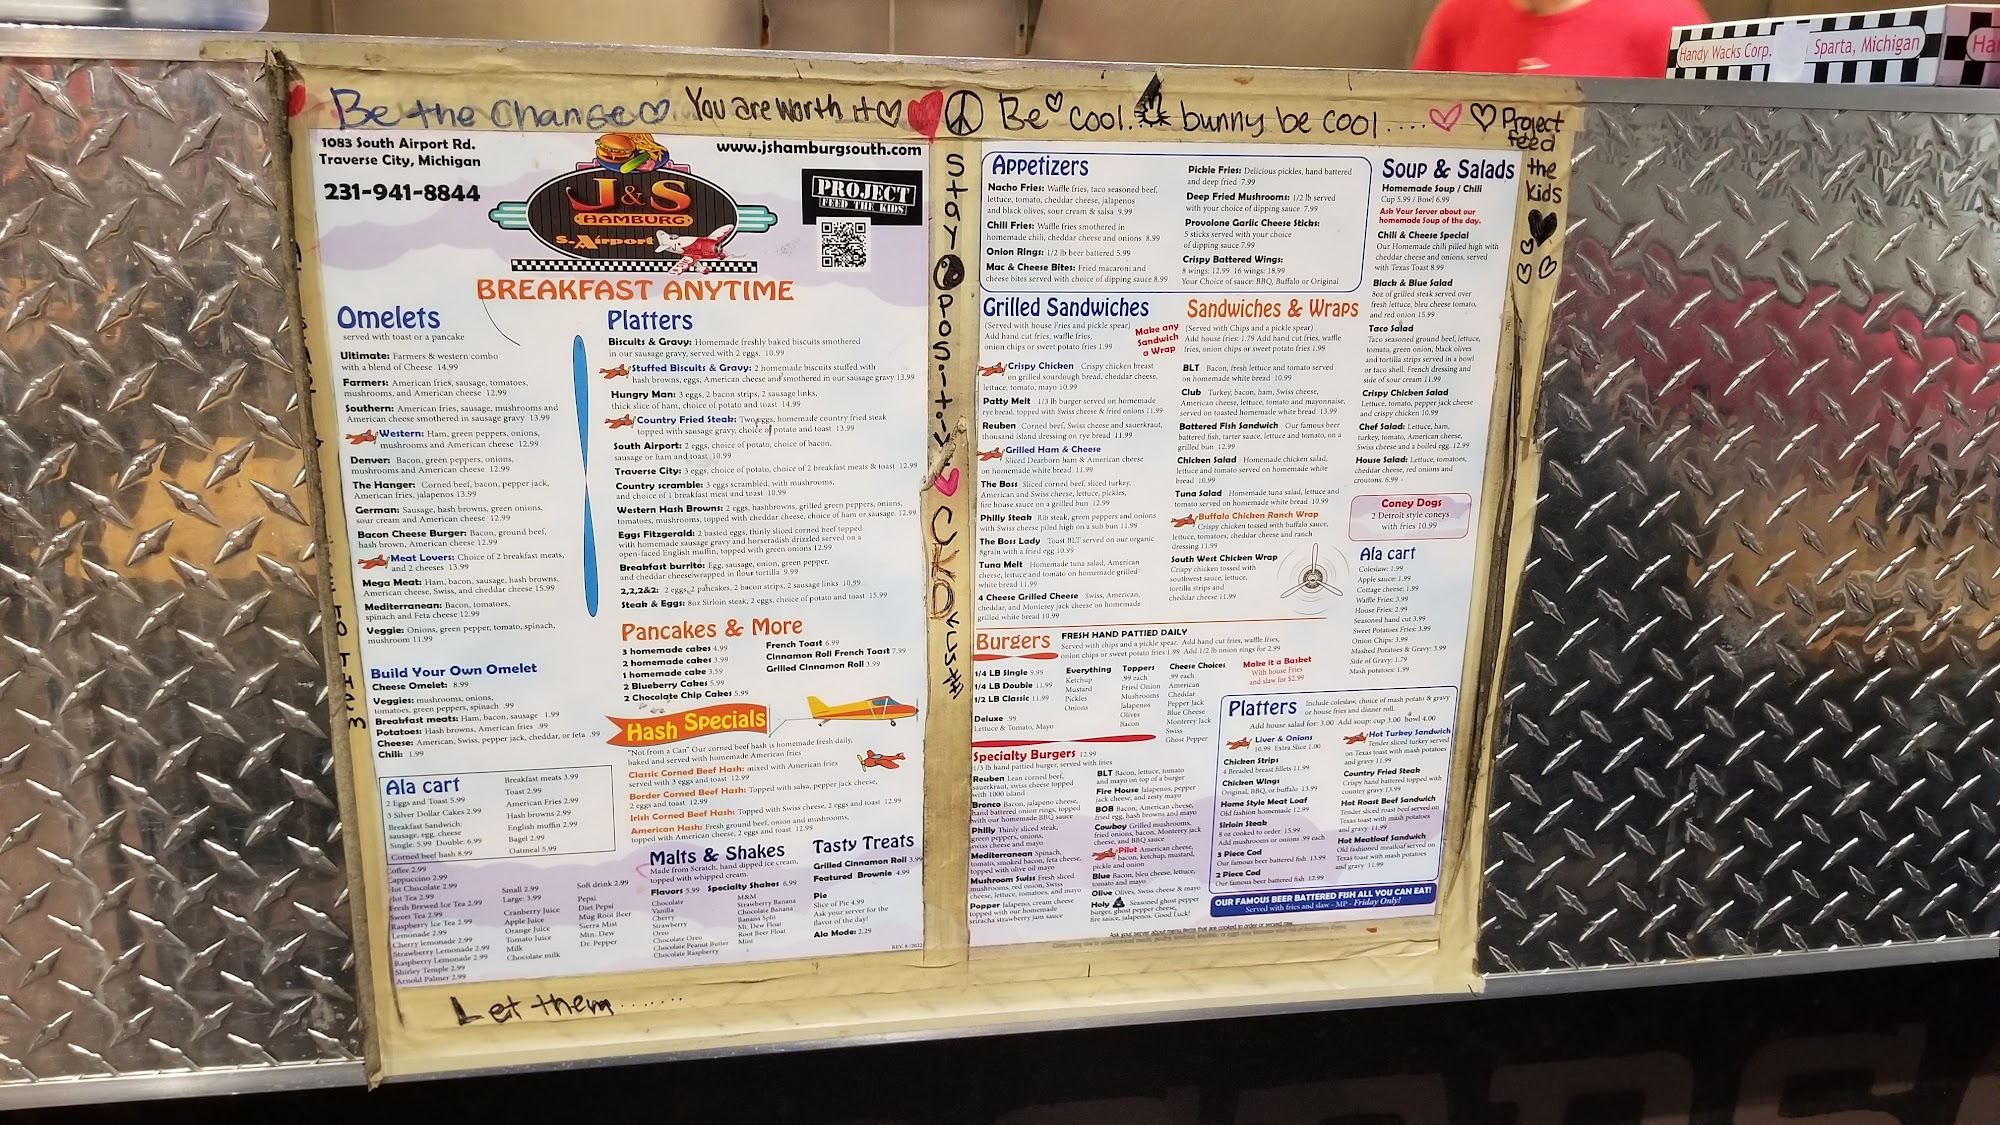 Be the Change
You are worth it
Be cool.
bunny be cool....
Project
feed
the
Kids
Handy Wacks Corp.
Sparta, Michigan
1083 South Airport Rd.
Traverse City, Michigan
231-941-8844
J&S
HAMBURG
S-Airport
www.jshamburgsouth.com
PROJECT
FEED THE KIDS
BREAKFAST ANYTIME
Omelets
served with toast or a pancake
Ultimate: Farmers & western combo
with a blend of Cheese 14.99
Farmers: American fries, sausage, tomatoes,
mushrooms, and American cheese 12.99
Southern: American fries, sausage, mushrooms and
American cheese smothered in sausage gravy 13.99
Western: Ham, green peppers, onions,
mushrooms and American cheese 12.99
Denver: Bacon, green peppers, onions,
mushrooms and American cheese 12.99
The Hanger: Corned beef, bacon, pepper jack,
American fries, jalapenos 13.99
German: Sausage, hash browns, green onions,
sour cream and American cheese 12.99
Bacon Cheese Burger: Bacon, ground beef,
hash brown, American cheese 12.99
Meat Lovers: Choice of 2 breakfast meats,
and 2 cheeses 13.99
Mega Meat: Ham, bacon, sausage, hash browns,
American cheese, Swiss, and cheddar cheese 15.99
Mediterranean: Bacon, tomatoes,
spinach and Feta cheese 12.99
Veggie: Onions, green pepper, tomato, spinach,
mushroom 11.99
Build Your Own Omelet
Cheese Omelet: 8.99
Veggies: mushrooms, onions,
tomatoes, green peppers, spinach .99
Breakfast meats: Ham, bacon, sausage 1.99
Potatoes: Hash browns, American fries .99
Cheese: American, Swiss, pepper jack, cheddar, or feta .99
Chili: 1.99
Ala cart
2 Eggs and Toast 5.99
3 Silver Dollar Cakes 2.99
Breakfast Sandwich:
sausage, egg, cheese
Single: 5.99 Double: 6.99
Corned beef hash 8.99
Breakfast meats 3.99
Toast 2.99
American Fries 2.99
Hash browns 2.99
English muffin 2.99
Bagel 2.99
Oatmeal 5.99
Coffee 2.99
Cappuccino 2.99
Hot Chocolate 2.99
Hot Tea 2.99
Fresh Brewed Ice Tea 2.99
Sweet Tea 2.99
Raspberry Ice Tea 2.99
Lemonade 2.99
Cherry lemonade 2.99
Strawberry Lemonade 2.99
Raspberry Lemonade 2.99
Shirley Temple 2.99
Arnold Palmer 2.99
Small 2.99
Large: 3.99
Cranberry Juice
Apple Juice
Orange Juice
Tomato Juice
Milk
Chocolate milk
Soft drink 2.99
Pepsi
Diet Pepsi
Mug Root Beer
Sierra Mist
Mtn. Dew
Dr. Pepper
Platters
Biscuits & Gravy: Homemade freshly baked biscuits smothered
in our sausage gravy, served with 2 eggs. 10.99
Stuffed Biscuits & Gravy: 2 homemade biscuits stuffed with
hash browns, eggs, American cheese and smothered in our sausage gravy 13.99
Hungry Man: 3 eggs, 2 bacon strips, 2 sausage links,
thick slice of ham, choice of potato and toast 14.99
Country Fried Steak: Two eggs, homemade country fried steak
topped with sausage gravy, choice of potato and toast 13.99
South Airport: 2 eggs, choice of potato, choice of bacon,
sausage or ham and toast 10.99
Traverse City: 3 eggs, choice of potato, choice of 2 breakfast meats & toast 12.99
Country scramble: 3 eggs scrambled, with mushrooms,
and choice of 1 breakfast meat and toast 10.99
Western Hash Browns: 2 eggs, hashbrowns, grilled green peppers, onions,
tomatoes, mushrooms, topped with cheddar cheese, choice of ham or sausage. 12.99
Eggs Fitzgerald: 2 basted eggs, thinly sliced corned beef topped
with homemade sausage gravy and horseradish drizzled served on a
open-faced English muffin, topped with green onions 12.99
Breakfast burrito: Egg, sausage, onion, green pepper,
and cheddar cheese wrapped in flour tortilla 9.99
2,2,2&2: 2 eggs, 2 pancakes, 2 bacon strips, 2 sausage links 10.99
Steak & Eggs: 8oz Sirloin steak, 2 eggs, choice of potato and toast 15.99
Pancakes & More
3 homemade cakes 4.99
2 homemade cakes 3.99
1 homemade cake 3.59
2 Blueberry Cakes 5.99
2 Chocolate Chip Cakes 5.99
French Toast 6.99
Cinnamon Roll French Toast 7.99
Grilled Cinnamon Roll 3.99
Hash Specials
"Not from a Can" Our corned beef hash is homemade fresh daily,
baked and served with homemade American fries
Classic Corned Beef Hash: mixed with American fries
served with 3 eggs and toast 12.99
Border Corned Beef Hash: Topped with salsa, pepper jack cheese,
2 eggs and toast 12.99
Irish Corned Beef Hash: Topped with Swiss cheese, 2 eggs and toast 12.99
American Hash: Fresh ground beef, onion and mushrooms,
topped with American cheese, 2 eggs and toast 12.99
Malts & Shakes
Made from Scratch, hand dipped ice cream,
topped with whipped cream.
Flavors 5.99
Chocolate
Vanilla
Cherry
Strawberry
Oreo
Chocolate Oreo
Chocolate Peanut Butter
Chocolate Raspberry
Specialty Shakes 6.99
M&M
Strawberry Banana
Chocolate Banana
Banana Split
Mt. Dew Float
Root Beer Float
Mint
Tasty Treats
Grilled Cinnamon Roll 3.99
Featured Brownie 4.99
Pie
Slice of Pie 4.99
Ask your server for the
flavor of the day!
Ala Mode: 2.29
REV. 8/2022
Let them.......
Stay
Positive
Appetizers
Nacho Fries: Waffle fries, taco seasoned beef,
lettuce, tomato, cheddar cheese, jalapenos
and black olives, sour cream & salsa 9.99
Chili Fries: Waffle fries smothered in
homemade chili, cheddar cheese and onions 8.99
Onion Rings: 1/2 lb beer battered 5.99
Mac & Cheese Bites: Fried macaroni and
cheese bites served with choice of dipping sauce 8.99
Pickle Fries: Delicious pickles, hand battered
and deep fried 7.99
Deep Fried Mushrooms: 1/2 lb served
with your choice of dipping sauce 7.99
Provolone Garlic Cheese Sticks:
5 sticks served with your choice
of dipping sauce 7.99
Crispy Battered Wings:
8 wings: 12.99 16 wings: 18.99
Your Choice of sauce: BBQ, Buffalo or Original
Soup & Salads
Homemade Soup / Chili
Cup 5.99 / Bowl 6.99
Ask Your Server about our
homemade Soup of the day.
Chili & Cheese Special
Our Homemade chili pilled high with
cheddar cheese and onions, served
with Texas Toast 8.99
Black & Blue Salad
8oz of grilled steak served over
fresh lettuce, bleu cheese tomato,
and red onion 15.99
Taco Salad
Taco seasoned ground beef, lettuce,
tomato, green onion, black olives
and tortilla strips served in a bowl
or taco shell. French dressing and
side of sour cream 11.99
Crispy Chicken Salad
Lettuce, tomato, pepper jack cheese
and crispy chicken 10.99
Chef Salad: Lettuce, ham,
turkey, tomato, American cheese,
Swiss cheese and a boiled egg. 12.99
House Salad: Lettuce, tomatoes,
cheddar cheese, red onions and
croutons. 6.99
Coney Dogs
2 Detroit style coneys
with fries 10.99
Ala cart
Coleslaw: 1.99
Apple sauce: 1.99
Cottage cheese: 1.99
Waffle Fries: 3.99
House Fries: 2.99
Seasoned hand cut 3.99
Sweet Potatoes Fries: 3.99
Onion Chips: 3.99
Mashed Potatoes & Gravy: 3.99
Side of Gravy: 1.79
Mash potatoes: 1.99
Grilled Sandwiches
(Served with house Fries and pickle spear)
Add hand cut fries, waffle fries,
onion chips or sweet potato fries 1.99
Make any
Sandwich
a Wrap
Crispy Chicken Crispy chicken breast
on grilled sourdough bread, cheddar cheese,
lettuce, tomato, mayo 10.99
Patty Melt 1/3 lb burger served on homemade
rye bread, topped with Swiss cheese & fried onions 11.99
Reuben Corned beef, Swiss cheese and sauerkraut,
thousand island dressing on rye bread 11.99
Grilled Ham & Cheese
Sliced Dearborn ham & American cheese
on homemade white bread 11.99
The Boss Sliced corned beef, sliced turkey,
American and Swiss cheese, lettuce, pickles,
fire house sauce on a grilled bun 12.99
Philly Steak Rib steak, green peppers and onions
with Swiss cheese piled high on a sub bun 11.99
The Boss Lady Toast BLT served on our organic
8grain with a fried egg 10.99
Tuna Melt Homemade tuna salad, American
cheese, lettuce and tomato on homemade grilled
white bread 11.99
4 Cheese Grilled Cheese Swiss, American,
cheddar, and Monterey jack cheese on homemade
grilled white bread 10.99
Sandwiches & Wraps
(Served with Chips and a pickle spear)
Add house fries: 1.79 Add hand cut fries, waffle
fries, onion chips or sweet potato fries 1.99
BLT Bacon, fresh lettuce and tomato served
on homemade white bread 10.99
Club Turkey, bacon, ham, Swiss cheese,
American cheese, lettuce, tomato and mayonnaise,
served on toasted homemade white bread 13.99
Battered Fish Sandwich Our famous beer
battered fish, tarter sauce, lettuce and tomato, on a
grilled bun 12.99
Chicken Salad Homemade chicken salad,
lettuce and tomato served on homemade white
bread 10.99
Tuna Salad Homemade tuna salad, lettuce and
tomato served on homemade white bread 10.99
Buffalo Chicken Ranch Wrap
Crispy chicken tossed with buffalo sauce,
lettuce, tomatoes, cheddar cheese and ranch
dressing 11.99
South West Chicken Wrap
Crispy chicken tossed with
southwest sauce, lettuce,
tortilla strips and
cheddar cheese 11.99
Burgers
FRESH HAND PATTIED DAILY
Served with chips and a pickle spear. Add hand cut fries, waffle fries,
onion chips or sweet potato fries 1.99 Add 1/2 lb onion rings for 2.99
1/4 LB Single 9.99
1/4 LB Double 11.99
1/2 LB Classic 11.99
Deluxe .99
Lettuce & Tomato, Mayo
Everything
Ketchup
Mustard
Pickles
Onions
Toppers
.99 each
Fried Onion
Mushrooms
Jalapenos
Olives
Bacon
Cheese Choices
.99 each
American
Cheddar
Pepper Jack
Blue Cheese
Monterey Jack
Swiss
Ghost Pepper
Make it a Basket
With house Fries
and slaw for $2.99
Specialty Burgers 12.99
1/3 lb hand pattied burger, served with fries
Reuben Lean corned beef,
sauerkraut, swiss cheese topped
with 1000 island
Bronco Bacon, jalapeno cheese,
hand battered onion rings, topped
with our homemade BBQ sauce
Philly Thinly sliced steak,
green peppers, onions,
swiss cheese and mayo
Mediterranean Spinach,
tomato, smoked bacon, feta cheese,
topped with olive oil mayo
Mushroom Swiss Fresh sliced
mushrooms, red onion, Swiss
cheese, lettuce, tomatoes, and mayo
Popper Jalapeno, cream cheese
topped with our homemade
sriracha strawberry jam sauce
BLT Bacon, lettuce, tomato
and mayo on top of a burger
Fire House Jalapenos, pepper
jack cheese, and zesty mayo
BOB Bacon, American cheese,
fried egg, hash browns and mayo
Cowboy Grilled mushrooms,
fried onions, bacon, Monterey jack
cheese, and BBQ sauce
Pilot American cheese,
bacon, ketchup, mustard,
pickle and onion
Blue Bacon, bleu cheese, lettuce,
tomato and mayo
Olive Olives, Swiss cheese & mayo
Holy Seasoned ghost pepper
burger, ghost pepper cheese,
fire sauce, jalapenos, Good Luck!
Platters
Include coleslaw, choice of mash potato & gravy
or house fries and dinner roll.
Add house salad for: 3.00 Add soup: cup 3.00 bowl 4.00
Liver & Onions
10.99 Extra Slice 1.00
Chicken Strips
4 Breaded breast fillets 11.99
Chicken Wings
Original, BBQ, or buffalo 13.99
Home Style Meat Loaf
Old fashion homemade 12.99
Sirloin Steak
8 oz cooked to order 15.99
Add mushrooms or onions .99 each
3 Piece Cod
Our famous beer battered fish 13.99
2 Piece Cod
Our famous beer battered fish 12.99
Hot Turkey Sandwich
Tender sliced turkey served
on Texas toast with mash potatoes
and gravy 11.99
Country Fried Steak
Crispy hand battered topped with
country gravy 13.99
Hot Roast Beef Sandwich
Tender sliced roast beef served on
Texas toast with mash potatoes
and gravy 11.99
Hot Meatloaf Sandwich
Old fashioned meatloaf served on
Texas toast with mash potatoes
and gravy 11.99
OUR FAMOUS BEER BATTERED FISH ALL YOU CAN EAT!
Served with fries and slaw - MP - Friday Only!
Ask your server about menu items that are cooked to order or served raw.